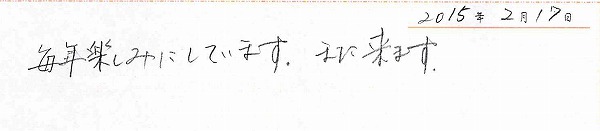 2015年 2月17日
毎年楽しみにしています. また来ます.